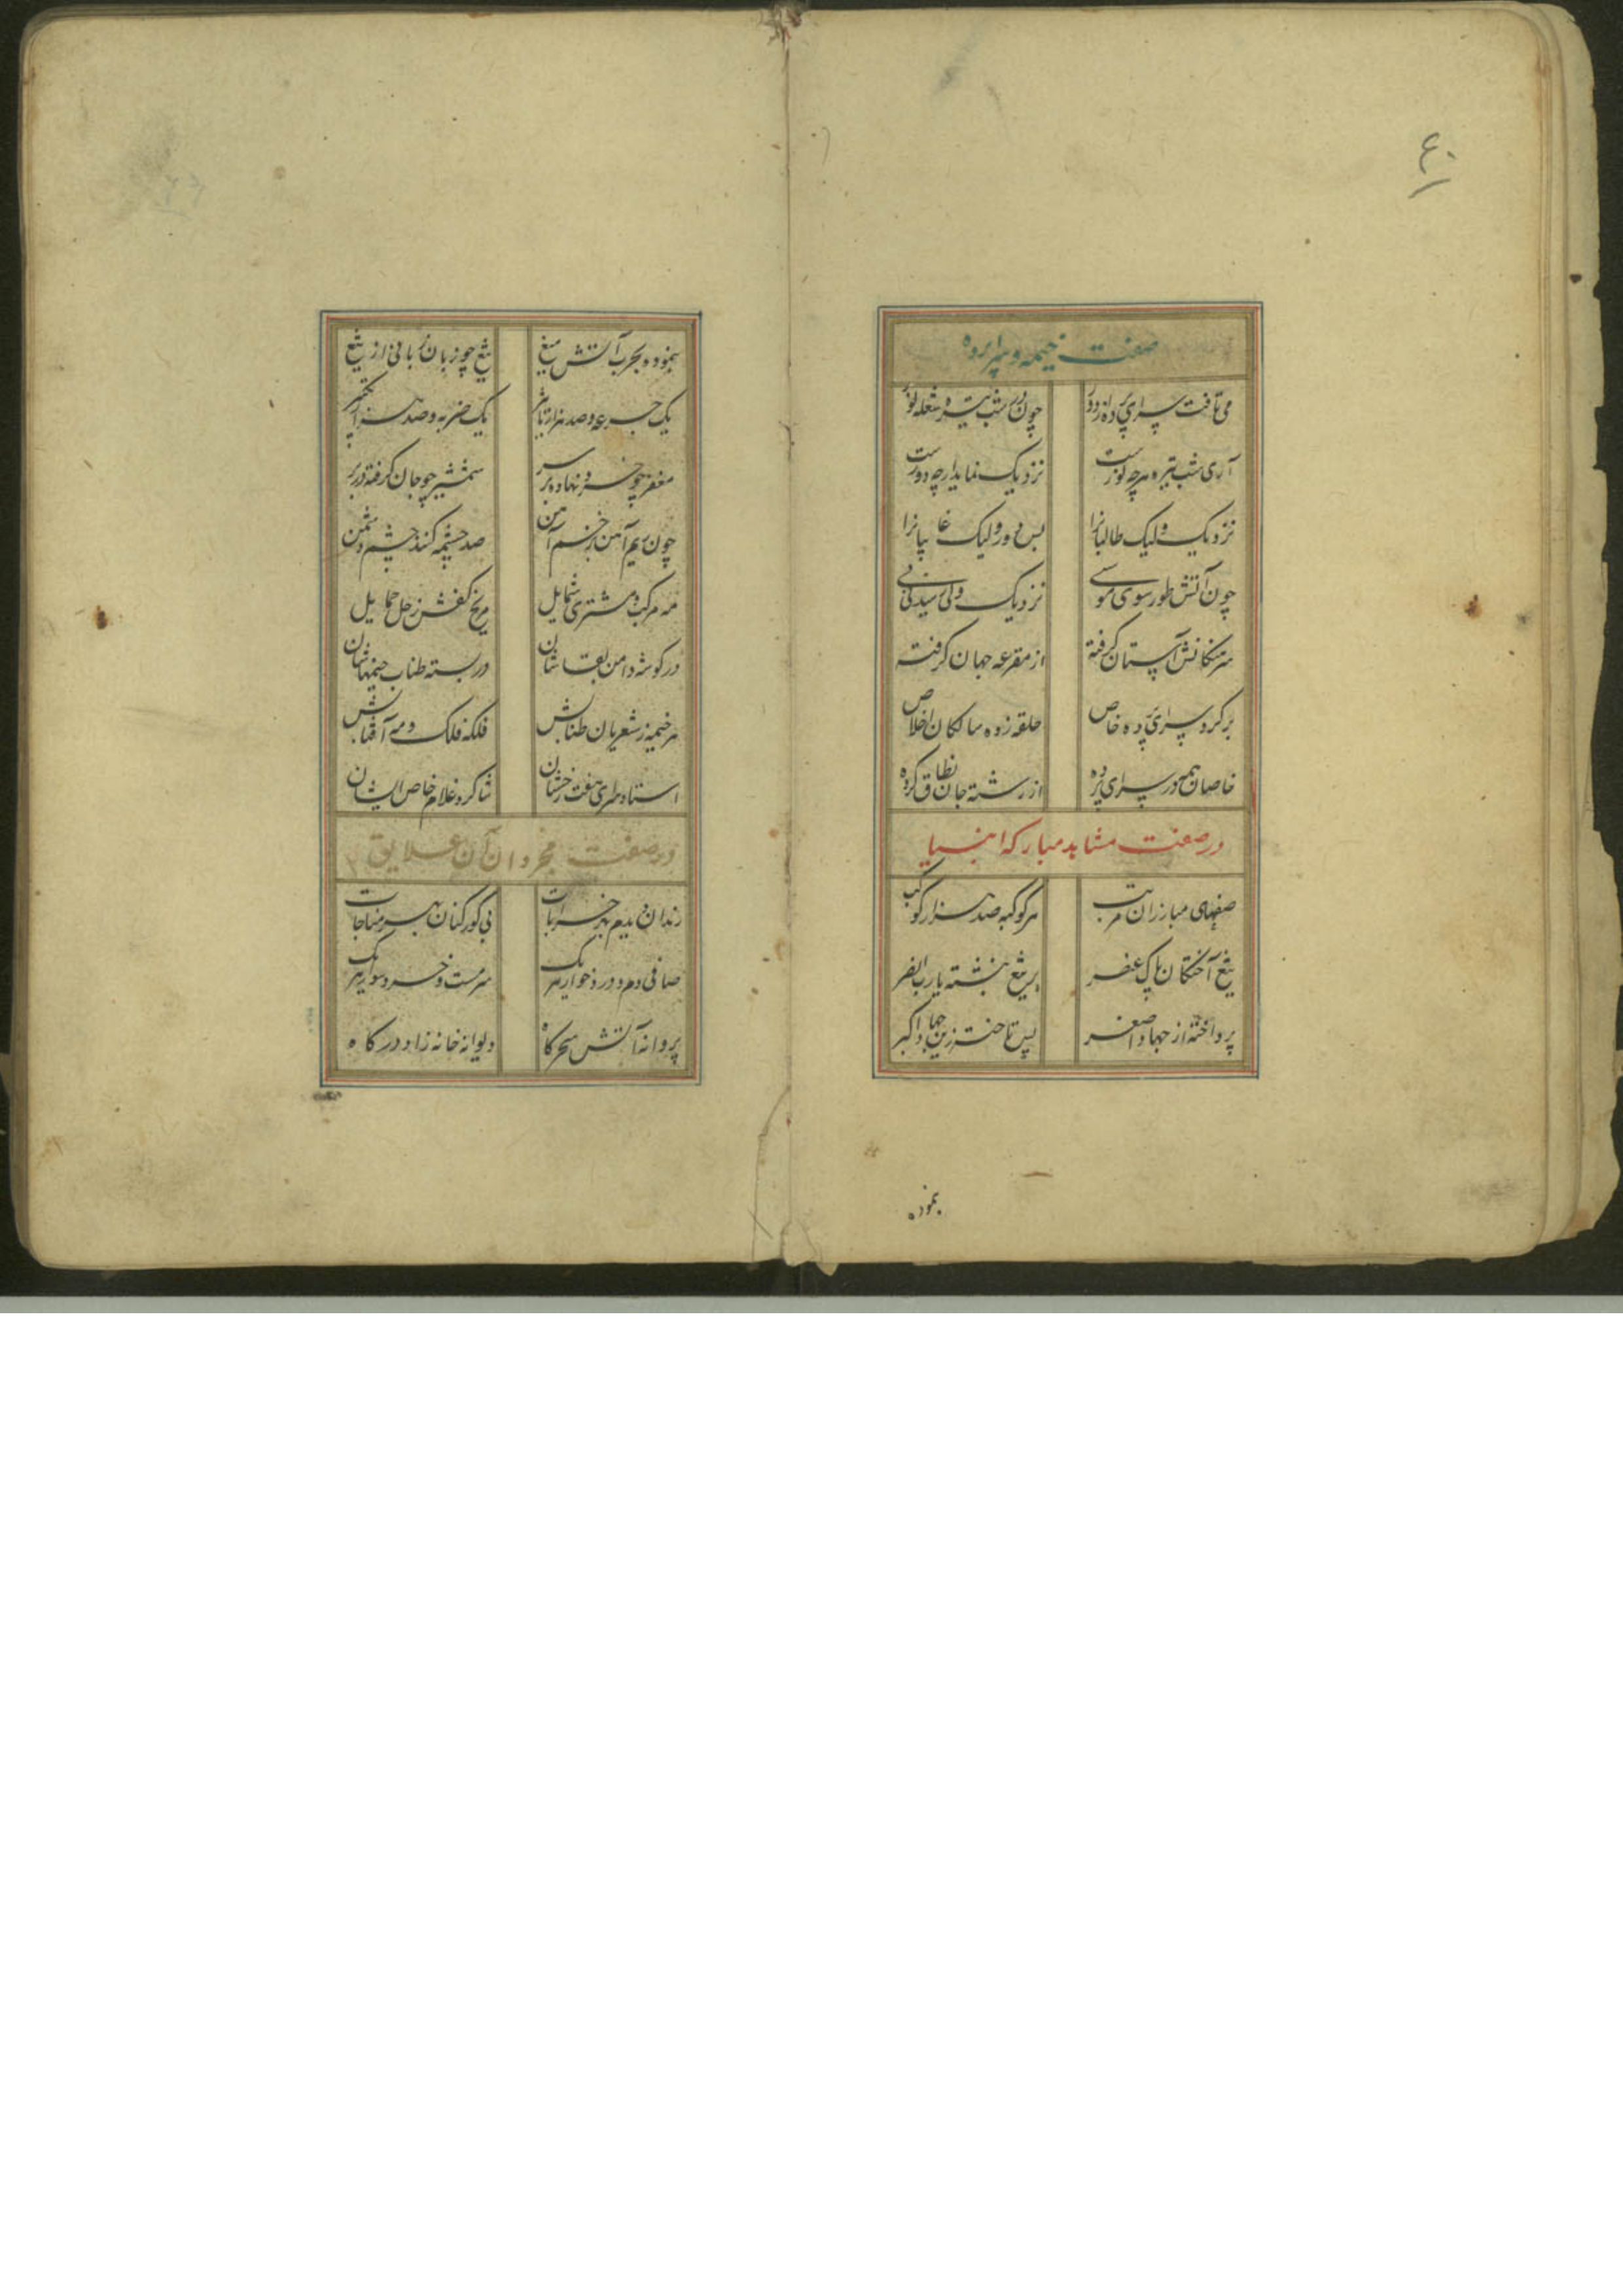 ٤٠
صفت خیمه و سراپرده
می‌تافت سراپرده از دور چون در شب تیره شعله نور
آری شب تیره هرچه نورست نزدیک نماید ارچه دورست
نزدیک ولیک طالبانرا بس دور ولیک غایبانرا
چون آتش طور سوی موسی نزدیک ولی رسیدنی نی
سرهنگانش آستان گرفته از مقرعه جهان گرفته
بر گرد سراپرده خاص حلقه زده سالکان اخلاص
خاصان همه در سراپرده از رشته جان نطاق کرده
در صفت مشاهد مبارکه انبیا
صفهای مبارزان مرتب هر کوکبه صد هزار کوکب
تیغ آختگان پاک عنصر بر تیغ نبشته یا رب انصر
پرداخته از جهاد اصغر پس تاخته زین جهاد اکبر
بنموده
بنموده بحرب آتش میغ تیغ چو زبان زبانی از تیغ
یک جرعه و صد هزار تاثیر یک ضربه و صد هزار تکبیر
مغفر چو خرد نهاده بر سر شمشیر چو جان گرفته در بر
چون ریم آهن ز خم آهن صد چشمه کند ز چشم دشمن
مه مرکب و مشتری شمایل مریخ کفش زحل حمایل
در گوشه دامن بقاشان در بسته طناب خیمهاشان
هر خیمه ز شعریان طنابش فلکه فلک و مه آفتابش
استاد سرای هفت رخشان شاگرد غلام خاص ایشان
در صفت مجردان آن علایق
رندان دیدم بهر خرابات بی گور کنان بهر مناجات
صافی دم و درد خوار هر یک سرمست و خرد سوار هر یک
پروانه آتش سحرگاه دیوانه خانه زاد درگاه